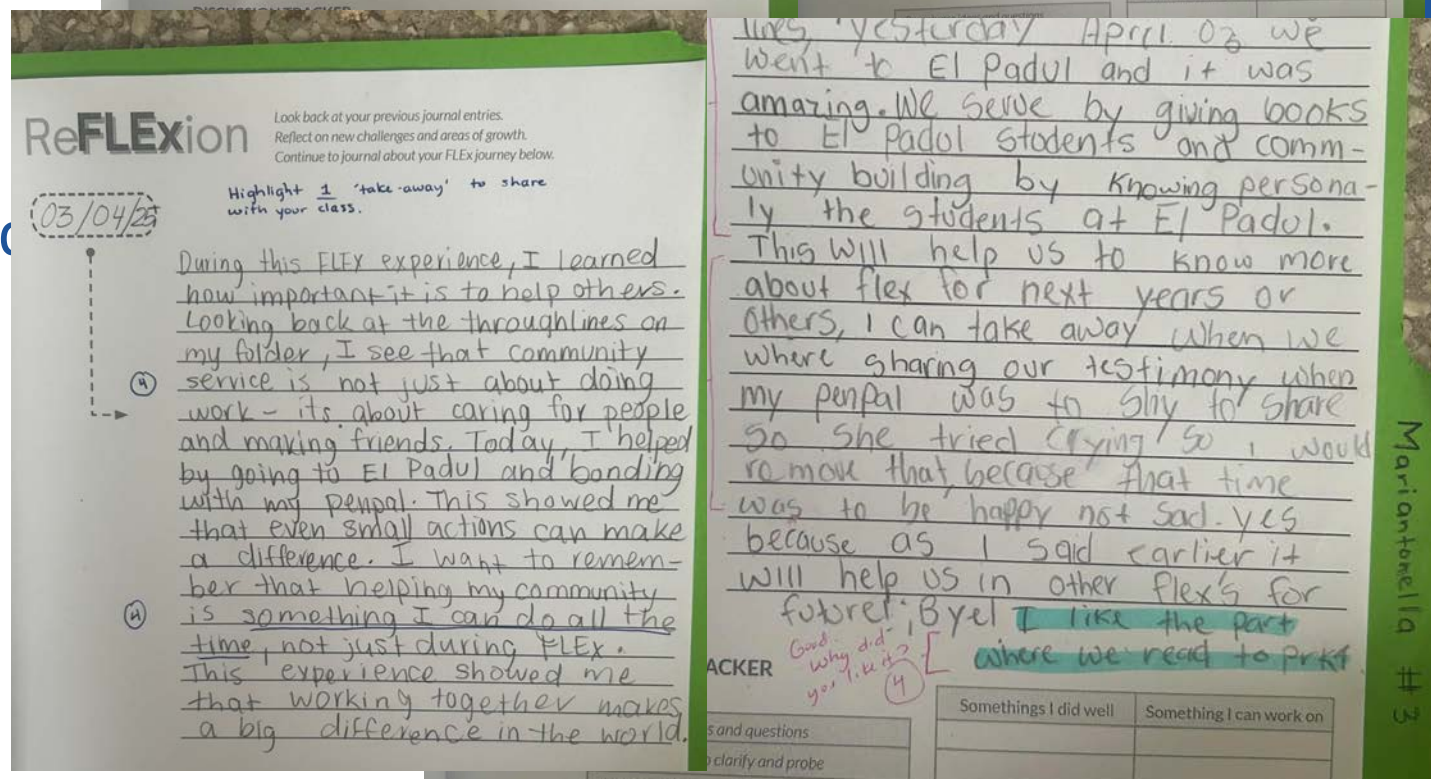 ReFLExion
Look back at your previous journal entries.
Reflect on new challenges and areas of growth.
Continue to journal about your FLEx journey below.
Highlight 1 'take-away' to share
with your class.
03/04/25
During this FLEX experience, I learned
how important it is to help others.
Looking back at the throughlines on
my folder, I see that community
4
service is not just about doing
work - its about caring for people
and making friends. Today, I helped
by going to El Padul and bonding
with my penpal. This showed me
that even small actions can make
a difference. I want to remem-
ber that helping my community
4
is something I can do all the
time, not just during FLEx.
This experience showed me
that working together makes
a big difference in the world.
lines, yesturday April 03 we
went to El Padul and it was
amazing. We serve by giving books
to El Padol students and comm-
unity building by knowing persona-
ly the students at El Padol.
This will help us to know more
about flex for next years or
others, I can take away when we
where sharing our testimony when
my penpal was to shy to share
so she tried crying so i would
remove that, because that time
was to be happy not sad. yes
because as I said earlier it
will help us in other flex's for
future! ¡Bye! I like the part
where we read to prk4
Good
Why did
you like it?
4
ACKER
Somethings I did well
Something I can work on
s and questions
clarify and probe
Mariantonella #3